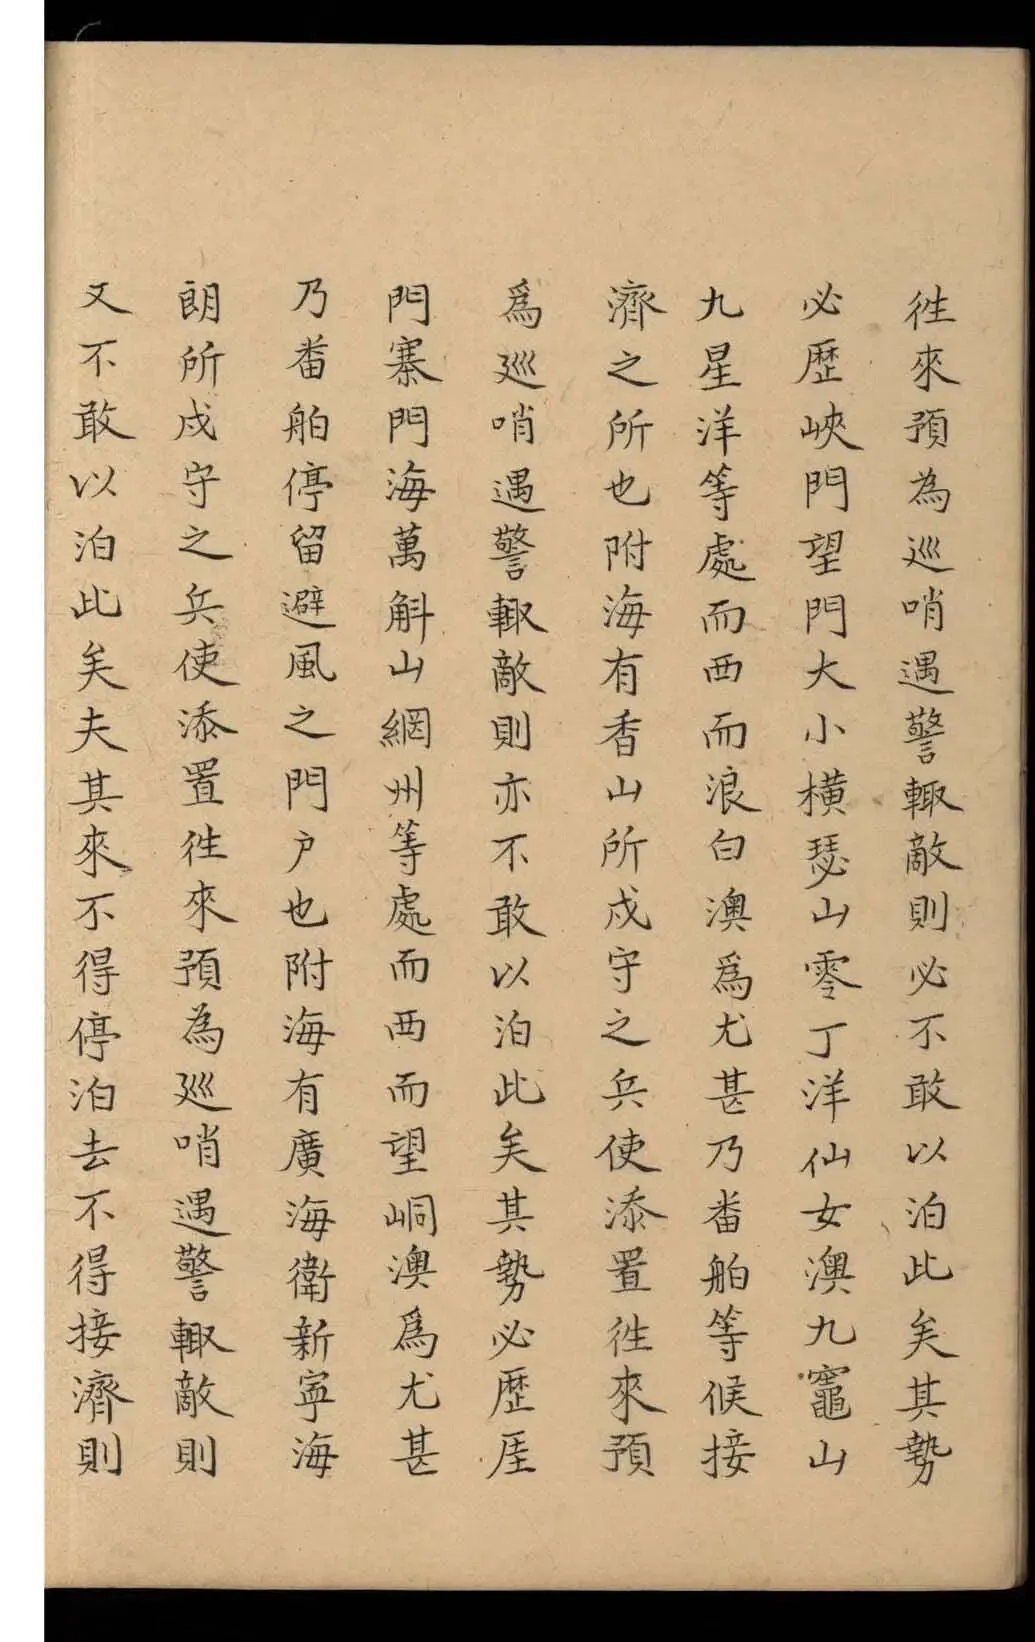 徃來預為巡哨遇警輙敵則必不敢以泊此矣其勢
必歷峽門望門大小横琴山零丁洋仙女澳九竈山
九星洋等處而西而浪白澳爲尤甚乃番舶等候接
濟之所也附海有香山所戍守之兵使添置徃來預
爲巡哨遇警輙敵則亦不敢以泊此矣其勢必歷厓
門寨門海萬斛山網州等處而西而望峒澳爲尤甚
乃番舶停留避風之門户也附海有廣海衛新寧海
朗所戍守之兵使添置徃來預為巡哨遇警輙敵則
又不敢以泊此矣夫其來不得停泊去不得接濟則